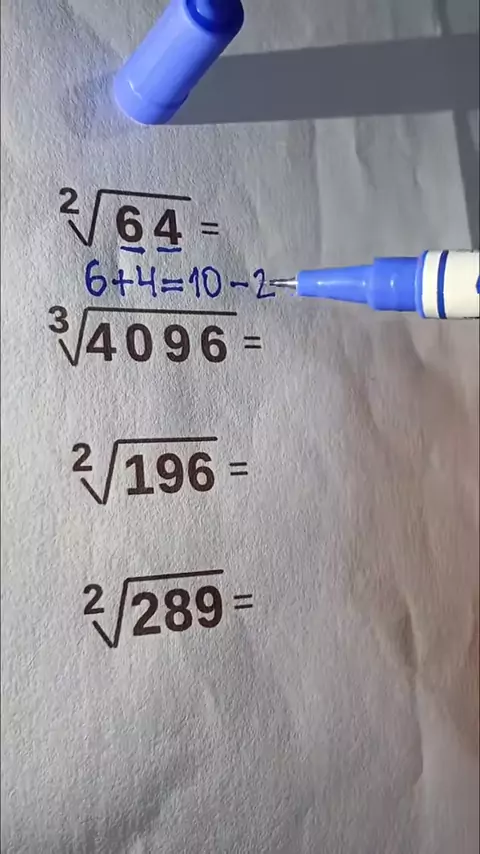 ²√64 =
6+4=10-2
³√4096 =
²√196 =
²√289 =